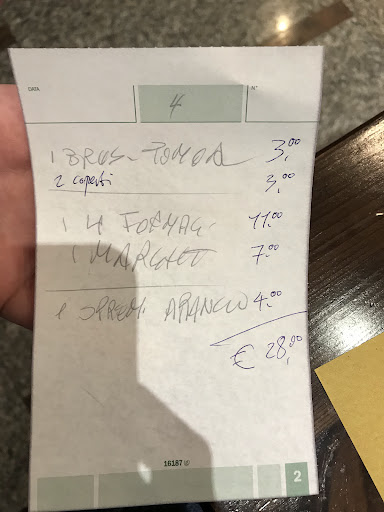 DATA N°
4
1 BRUS. POMOD 3,00
2 coperti 3,00
1 4 FORMAG. 11,00
1 MARGHE 7,00
1 SPREM ARANCIO 4,00
€ 28,00
16187
2